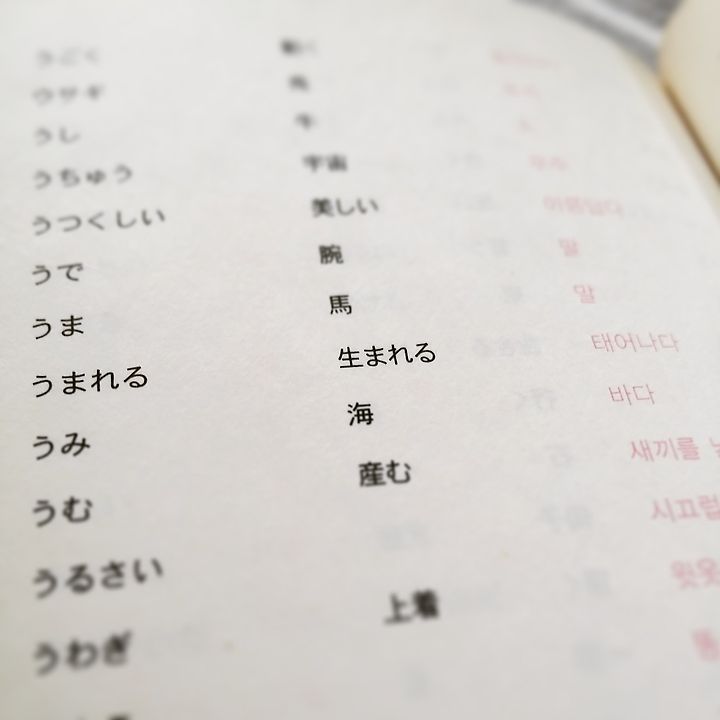 うごく 動く
ウサギ
うし 牛
うちゅう 宇宙 우주
うつくしい 美しい 아름답다
うで 腕
うま 馬 말
うまれる 生まれる 태어나다
うみ 海 바다
うむ 産む 새끼를
うるさい 시끄럽
うわぎ 上着 윗옷